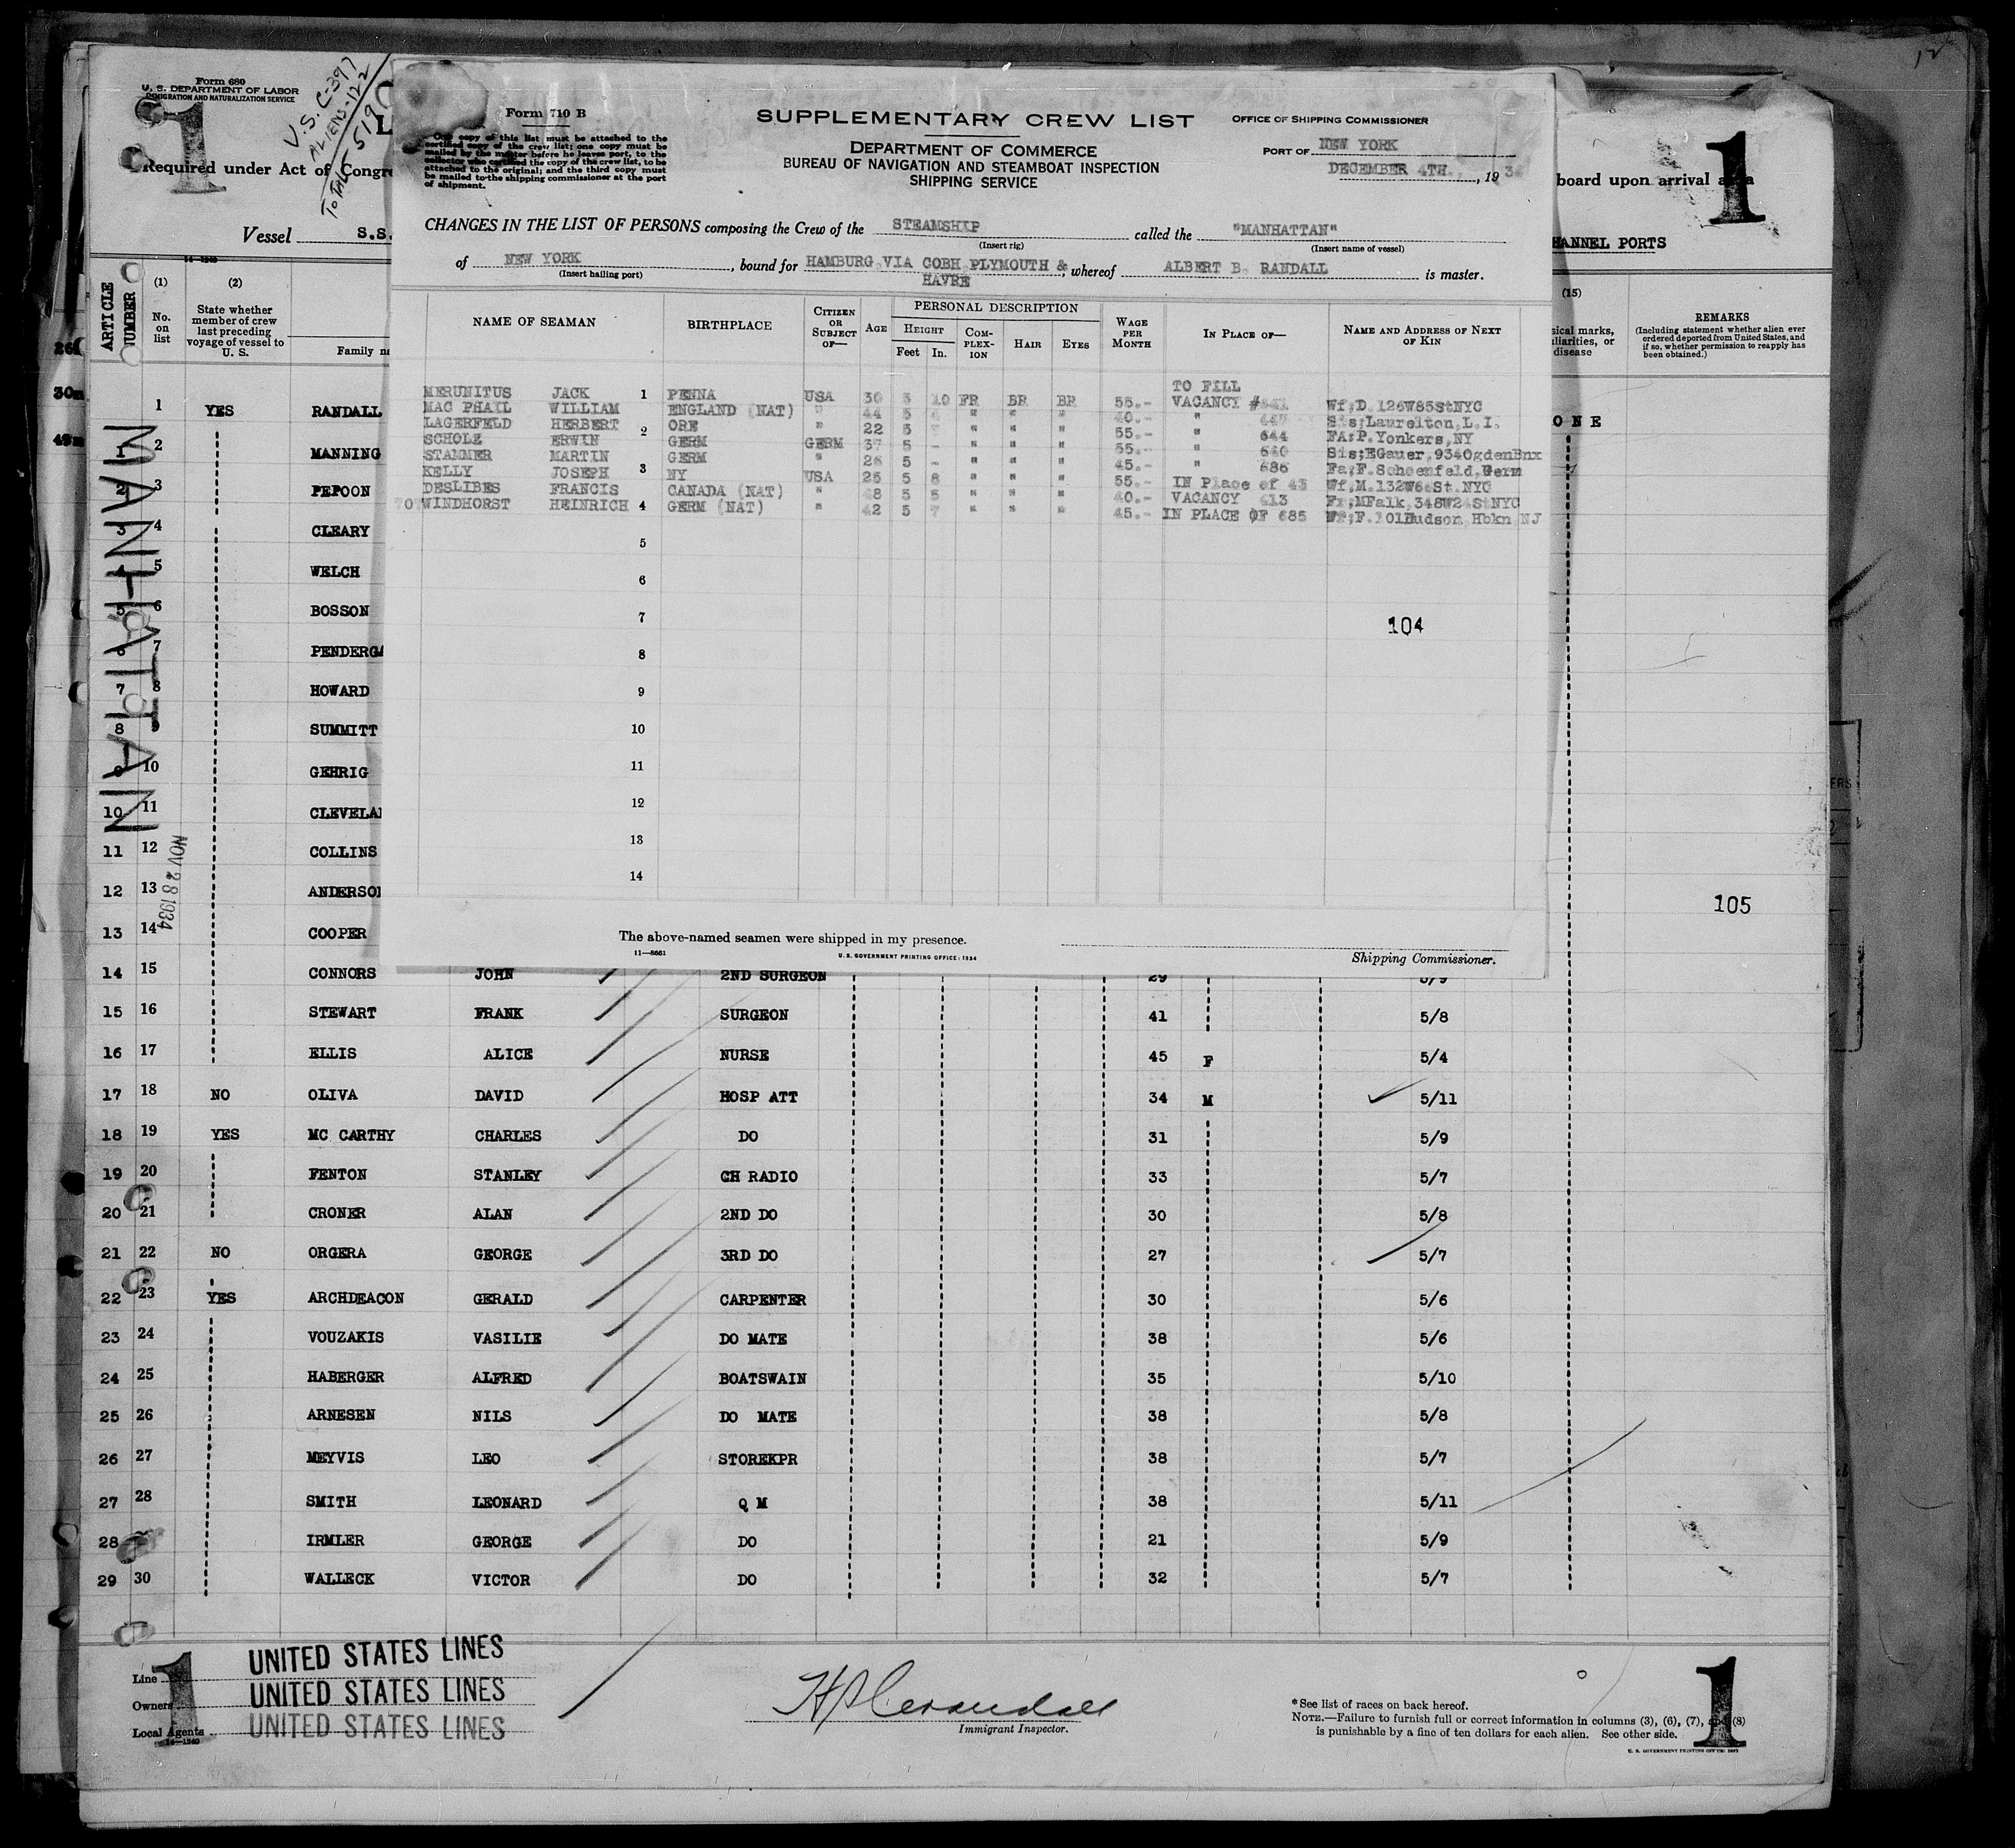 12
Form 680
U. S. DEPARTMENT OF LABOR
IMMIGRATION AND NATURALIZATION SERVICE
U. S. C-397
ALIENS-122
TOTAL 519
1
Required under Act of Congre
Vessel S.S.
Form 710 B
One copy of this list must be attached to the
certified copy of the crew list; one copy must be
mailed by the master before he leaves port, to the
collector who certified the copy of the crew list, to be
attached to the original; and the third copy must
be mailed to the shipping commissioner at the port
of shipment.
SUPPLEMENTARY CREW LIST
DEPARTMENT OF COMMERCE
BUREAU OF NAVIGATION AND STEAMBOAT INSPECTION
SHIPPING SERVICE
OFFICE OF SHIPPING COMMISSIONER
PORT OF NEW YORK
DECEMBER 4TH., 19
board upon arrival
1
HANNEL PORTS
CHANGES IN THE LIST OF PERSONS composing the Crew of the STEAMSHIP called the "MANHATTAN"
(Insert rig) (Insert name of vessel)
of NEW YORK, bound for HAMBURG VIA COBH PLYMOUTH & HAVRE, whereof ALBERT B. RANDALL is master.
(Insert hailing port)
NAME OF SEAMAN BIRTHPLACE CITIZEN OR SUBJECT OF— AGE PERSONAL DESCRIPTION HEIGHT Feet In. COMPLEXION HAIR EYES WAGE PER MONTH IN PLACE OF— NAME AND ADDRESS OF NEXT OF KIN
TO FILL
MERUNITUS JACK 1 PENNA USA 30 5 10 FR BR BR 55.- VACANCY # Wf;D.126W85StNYC
MAC PHAIL WILLIAM ENGLAND (NAT) " 44 5 4 " " " 40.- " Sis;Laurelton,L.I.
LAGERFELD HERBERT 2 ORE " 22 5 " " " 55.- " 644 FA;P.Yonkers,NY
SCHOLZ ERWIN GERM GERM 37 5 - " " " 55.- " 640 Sis;EGauer,934OgdenBnx
STAMMER MARTIN GERM " 26 5 - " " " 45.- " 686 Fa;F.Schoenfeld,Germ
KELLY JOSEPH 3 NY USA 25 5 8 " " " 55.- IN Place of 43 Wf,M.132W66St.NYC
DESLIBES FRANCIS CANADA (NAT) " 48 5 5 " " " 40.- VACANCY 413 Fr;MFalk,348W24StNYC
WINDHORST HEINRICH 4 GERM (NAT) " 42 5 7 " " " 45.- IN PLACE OF 685 Hudson Hbkn NJ
5
6
7
104
8
9
10
11
12
13
14
The above-named seamen were shipped in my presence.
11—8661 U. S. GOVERNMENT PRINTING OFFICE: 1934
Shipping Commissioner.
ARTICLE NUMBER
(1) No. on list
(2) State whether member of crew last preceding voyage of vessel to U. S.
Family na
(15)
sical marks,
liarities, or
disease
REMARKS
(Including statement whether alien ever
ordered deported from United States, and
if so, whether permission to reapply has
been obtained.)
MANHATTAN
NOV 28 1934
1 YES RANDALL ONE
1 2 MANNING
2 3 PEPOON
3 4 CLEARY
4 5 WELCH
5 6 BOSSON
6 7 PENDERGA
7 8 HOWARD
8 9 SUMMITT
9 10 GEHRIG
10 11 CLEVELAN
11 12 COLLINS
12 13 ANDERSON
105
13 14 COOPER
14 15 CONNORS JOHN 2ND SURGEON 29 5/9
15 16 STEWART FRANK SURGEON 41 5/8
16 17 ELLIS ALICE NURSE 45 F 5/4
17 18 NO OLIVA DAVID HOSP ATT 34 M 5/11
18 19 YES MC CARTHY CHARLES DO 31 5/9
19 20 FENTON STANLEY CH RADIO 33 5/7
20 21 CRONER ALAN 2ND DO 30 5/8
21 22 NO ORGERA GEORGE 3RD DO 27 5/7
22 23 YES ARCHDEACON GERALD CARPENTER 30 5/6
23 24 VOUZAKIS VASILIE DO MATE 38 5/6
24 25 HABERGER ALFRED BOATSWAIN 35 5/10
25 26 ARNESEN NILS DO MATE 38 5/8
26 27 MEYVIS LEO STOREKPR 38 5/7
27 28 SMITH LEONARD Q M 38 5/11
28 IRMLER GEORGE DO 21 5/9
29 30 WALLECK VICTOR DO 32 5/7
Line UNITED STATES LINES
Owners UNITED STATES LINES
Local Agents UNITED STATES LINES
1
Immigrant Inspector.
*See list of races on back hereof.
NOTE.—Failure to furnish full or correct information in columns (3), (6), (7), (8)
is punishable by a fine of ten dollars for each alien. See other side.
1